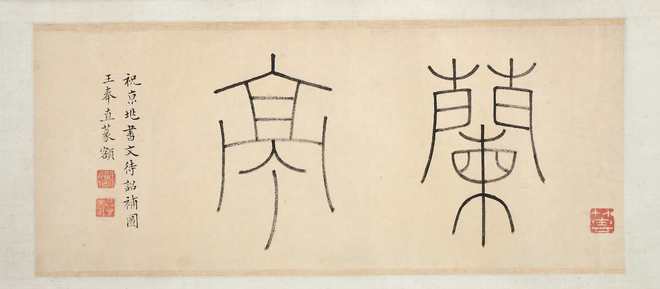 蘭亭
祝京兆書文待詔補圖
王奉直篆額